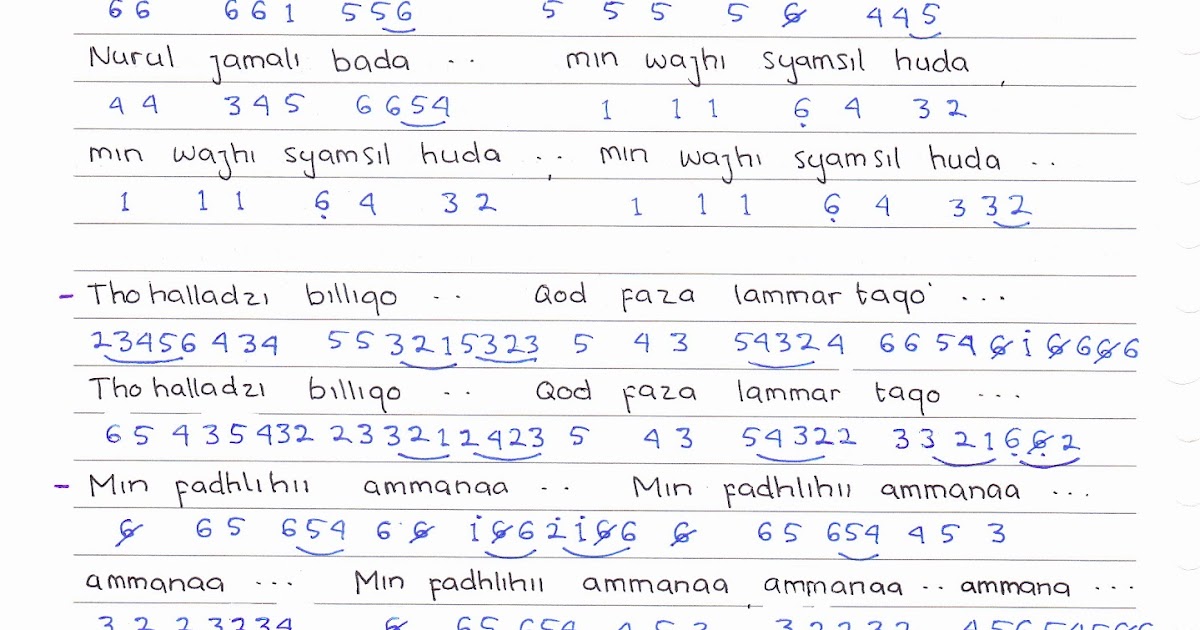 6 6 6 6 1 5 5 6 5 5 5 5 6̸ 4 4 5
Nurul jamali bada .. min wajhi syamsil huda ,
4 4 3 4 5 6 6 5 4 1 1 1 6̣ 4 3 2
min wajhi syamsil huda .. , min wajhi syamsil huda ..
1 1 1 6̣ 4 3 2 1 1 1 6̣ 4 3 3 2
- Tho halladzi billiqo .. Qod faza lammar taqo' ...
23456 4 3 4 5 5 3 2 1 5 3 2 3 5 4 3 5 4 3 2 4 6 6 5 4 6̸ i 6̸ 6 6̸ 6
Tho halladzi billiqo .. Qod faza lammar taqo ...
6 5 4 3 5 4 3 2 2 3 3 2 1 2 4 2 3 5 4 3 5 4 3 2 2 3 3 2 1 6̣ 6̸̣ 2
- Min fadhlihii ammanaa .. Min fadhlihii ammanaa ...
6̸ 6 5 6 5 4 6 6̸ i 6̸ 6 2 i i 6̸ 6 6̸ 6 5 6 5 4 4 5 3
ammanaa ... Min fadhlihii ammanaa , ammanaa .. ammana ...
3 2 2 3 2 3 4 6̸ 6 5 6 5 4